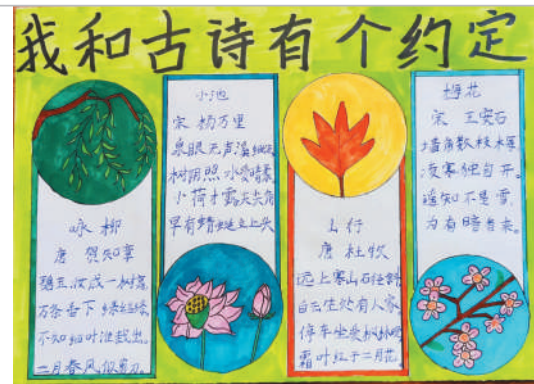 我和古诗有个约定
咏柳
唐 贺知章
碧玉妆成一树高
万条垂下绿丝绦
不知细叶谁裁出
二月春风似剪刀。
小池
宋 杨万里
泉眼无声惜细流
树阴照水爱晴柔
小荷才露尖尖角
早有蜻蜓立上头
山行
唐 杜牧
远上寒山石径斜
白云生处有人家
停车坐爱枫林晚
霜叶红于二月花。
梅花
宋 王安石
墙角数枝梅
凌寒独自开。
遥知不是雪,
为有暗香来。